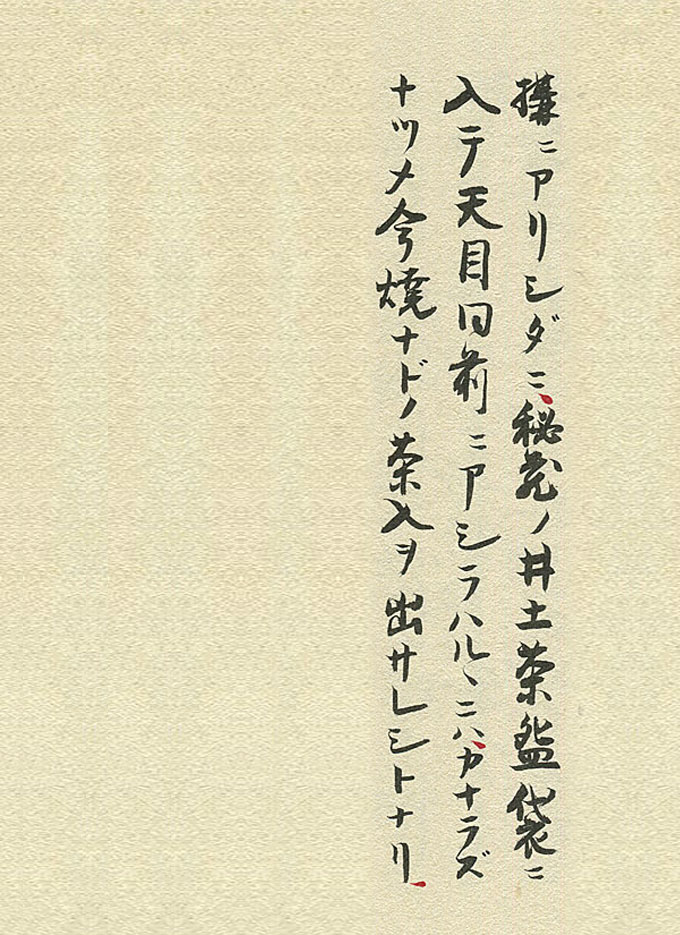 ニアリシダニ、秘蔵ノ井土茶盌袋ニ
入テ天目同前ニアシラハルヽニハ、カナラズ
ナツメ今燒ナドノ茶入ヲ出サレシトナリ、